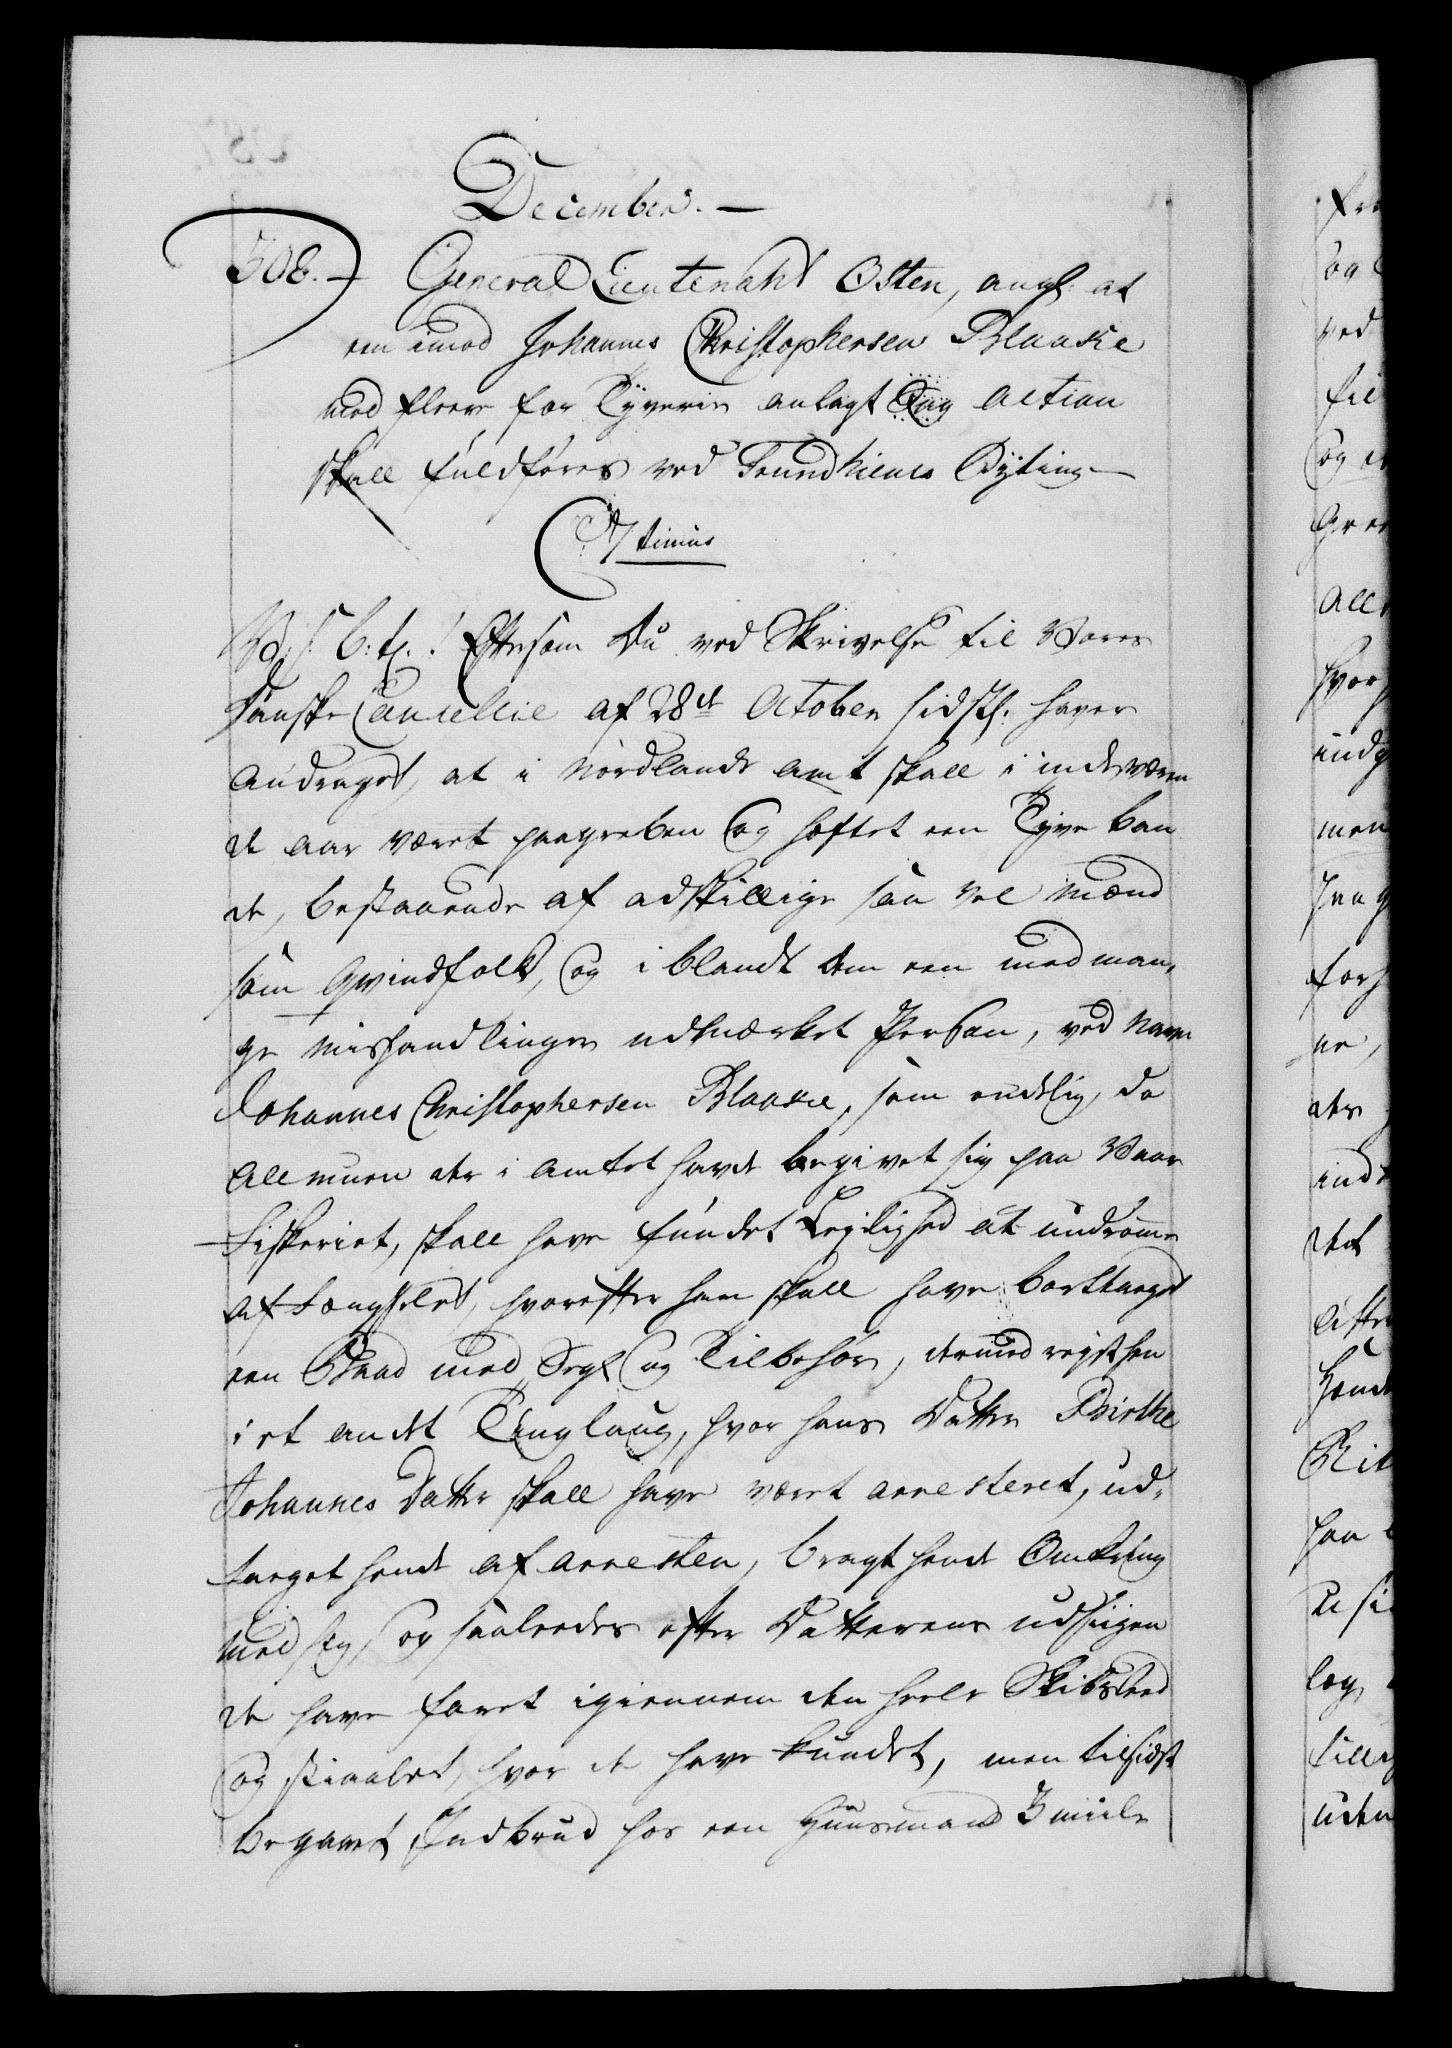 December. —
508. — General Lieutenant Osten, angl: at
een imod Johannes Christophersen Blaasie
med fleere for Tyverie anlagt Tug Action
skall fuldføres ved Trundhiems Byting —
Ultimus
V. S. B: T. ! Eftersom Du ved Skrivelse til Vores
danske Cancellie af 28de October sidstl: haver
andraget, at i Nordlands Amt skall i indeværen
de Aar været paagreben og heftet een Tyve ban
de, bestaaende af adskillige saa vel Mænd
som Qvindfolk, og i blandt dem een med man,
ge Mishandlinger udmærket Person, ved Navn
Johannes Christophersen Blaasie, som endelig, da
Allmuen der i Amtet havde begivet sig paa Vaar
Fiskeriet, skall have fundet Leylighed at undrømme
af Fængselet, hvorefter han skall have borttaget
een Baad med Segl og Tilbehør, dermed reyst hen
i et andet Tinglaug, hvor hans Datter Birthe
Johannes Datter skall have været arresteret, ud,
taaget hende af Arresten, bragt hende Omkring
med sig, og saaledes efter Datterens udsigen
de have faret igiennem den heele Skibsleed
og stiaalet, hvor de have kundet, men tilsidst
begaaet Indbrud hos een Huusmand 3 miile